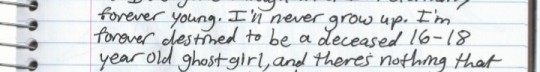 forever young. I'll never grow up. I'm
forever destined to be a deceased 16-18
year old ghost girl, and there's nothing that